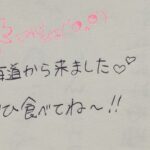 海道から来ました♡♡
ひ食べてね〜!!